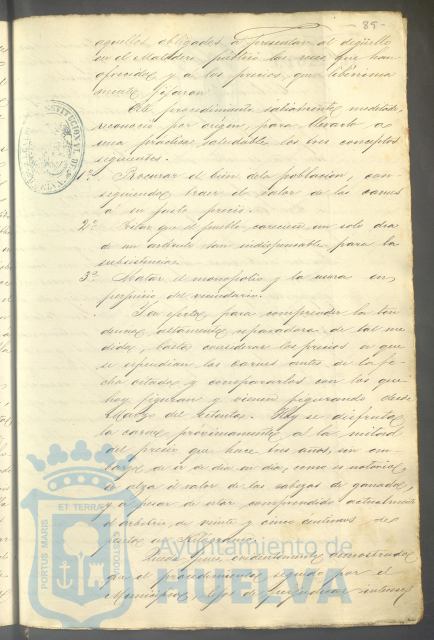 - 89 -
aquellos obligados a presentar al degüello
en el Matadero público las reses que han
ofrecido, y á los precios que libérrima
mente fijaran.
Este procedimiento sabiamente meditado,
reconoció por origen, para llevarlo a
una práctica saludable, los tres conceptos
siguientes.
1º Procurar el bien de la población, con
siguiendo traer el valor de las carnes
á su justo precio.
2º Evitar que el pueblo careciese un solo dia
de un artículo tan indispensable para la
subsistencia.
3º Matar el monopolio y la usura en
perjuicio del vecindario.
En efecto, para comprender la ten
dencia altamente reparadora de tal me
dida, basta considerar los precios a que
se expendian las carnes antes de la fe
cha citada y compararlos con los que
hoy figuran y vienen figurando desde
Marzo del
Hoy se disfruta
la carne próximamente á la mitad
del precio que hace tres años, sin em
bargo de ir de dia en dia, como es notorio,
en alza el valor de las cabezas de ganado,
y á pesar de estar comprendido actualmente
el arbitrio de veinte y cinco céntimos de
peseta en Kilogramo.
Queda pues, evidentemente demostrado,
que el procedimiento seguido por el
Municipio, lejos de perjudicar intereses
PORTUS MARIS ET TERRAE CUSTODIA
Ayuntamiento de
HUELVA